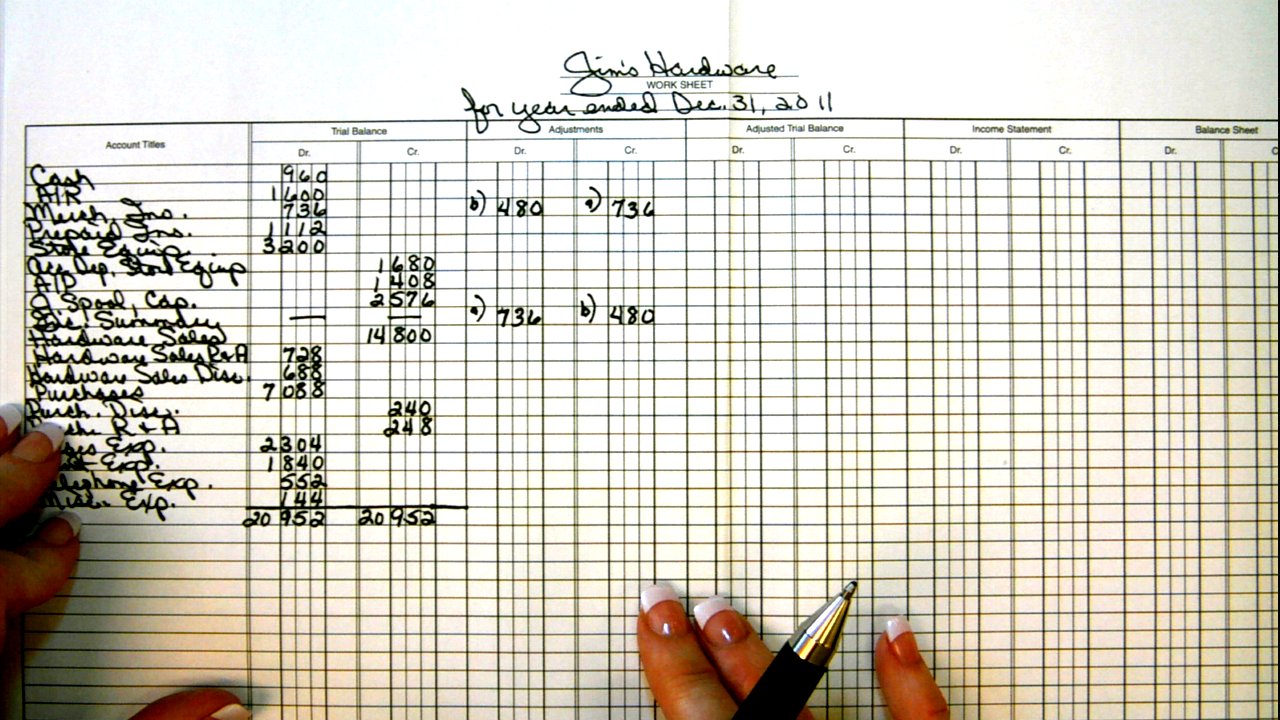 Jim's Hardware
WORK SHEET
for year ended Dec. 31, 2011
Account Titles Trial Balance Adjustments Adjusted Trial Balance Income Statement Balance Sheet
Dr. Cr. Dr. Cr. Dr. Cr. Dr. Cr. Dr. C
Cash 960
A/R 1600
Merch. Ins. 736 b) 480 a) 736
Prepaid Ins. 1112
Store Equip. 3200
Acc. Dep. Store Equip 1680
A/P 1408
J. Spool, Cap. 2576
Inc. Summary — — a) 736 b) 480
Hardware Sales 14800
Hardware Sales R+A 728
Hardware Sales Disc. 688
Purchases 7088
Purch. Disc. 240
R + A 248
Exp. 2304
Exp. 1840
Telephone Exp. 552
Misc. Exp. 144
20952 20952